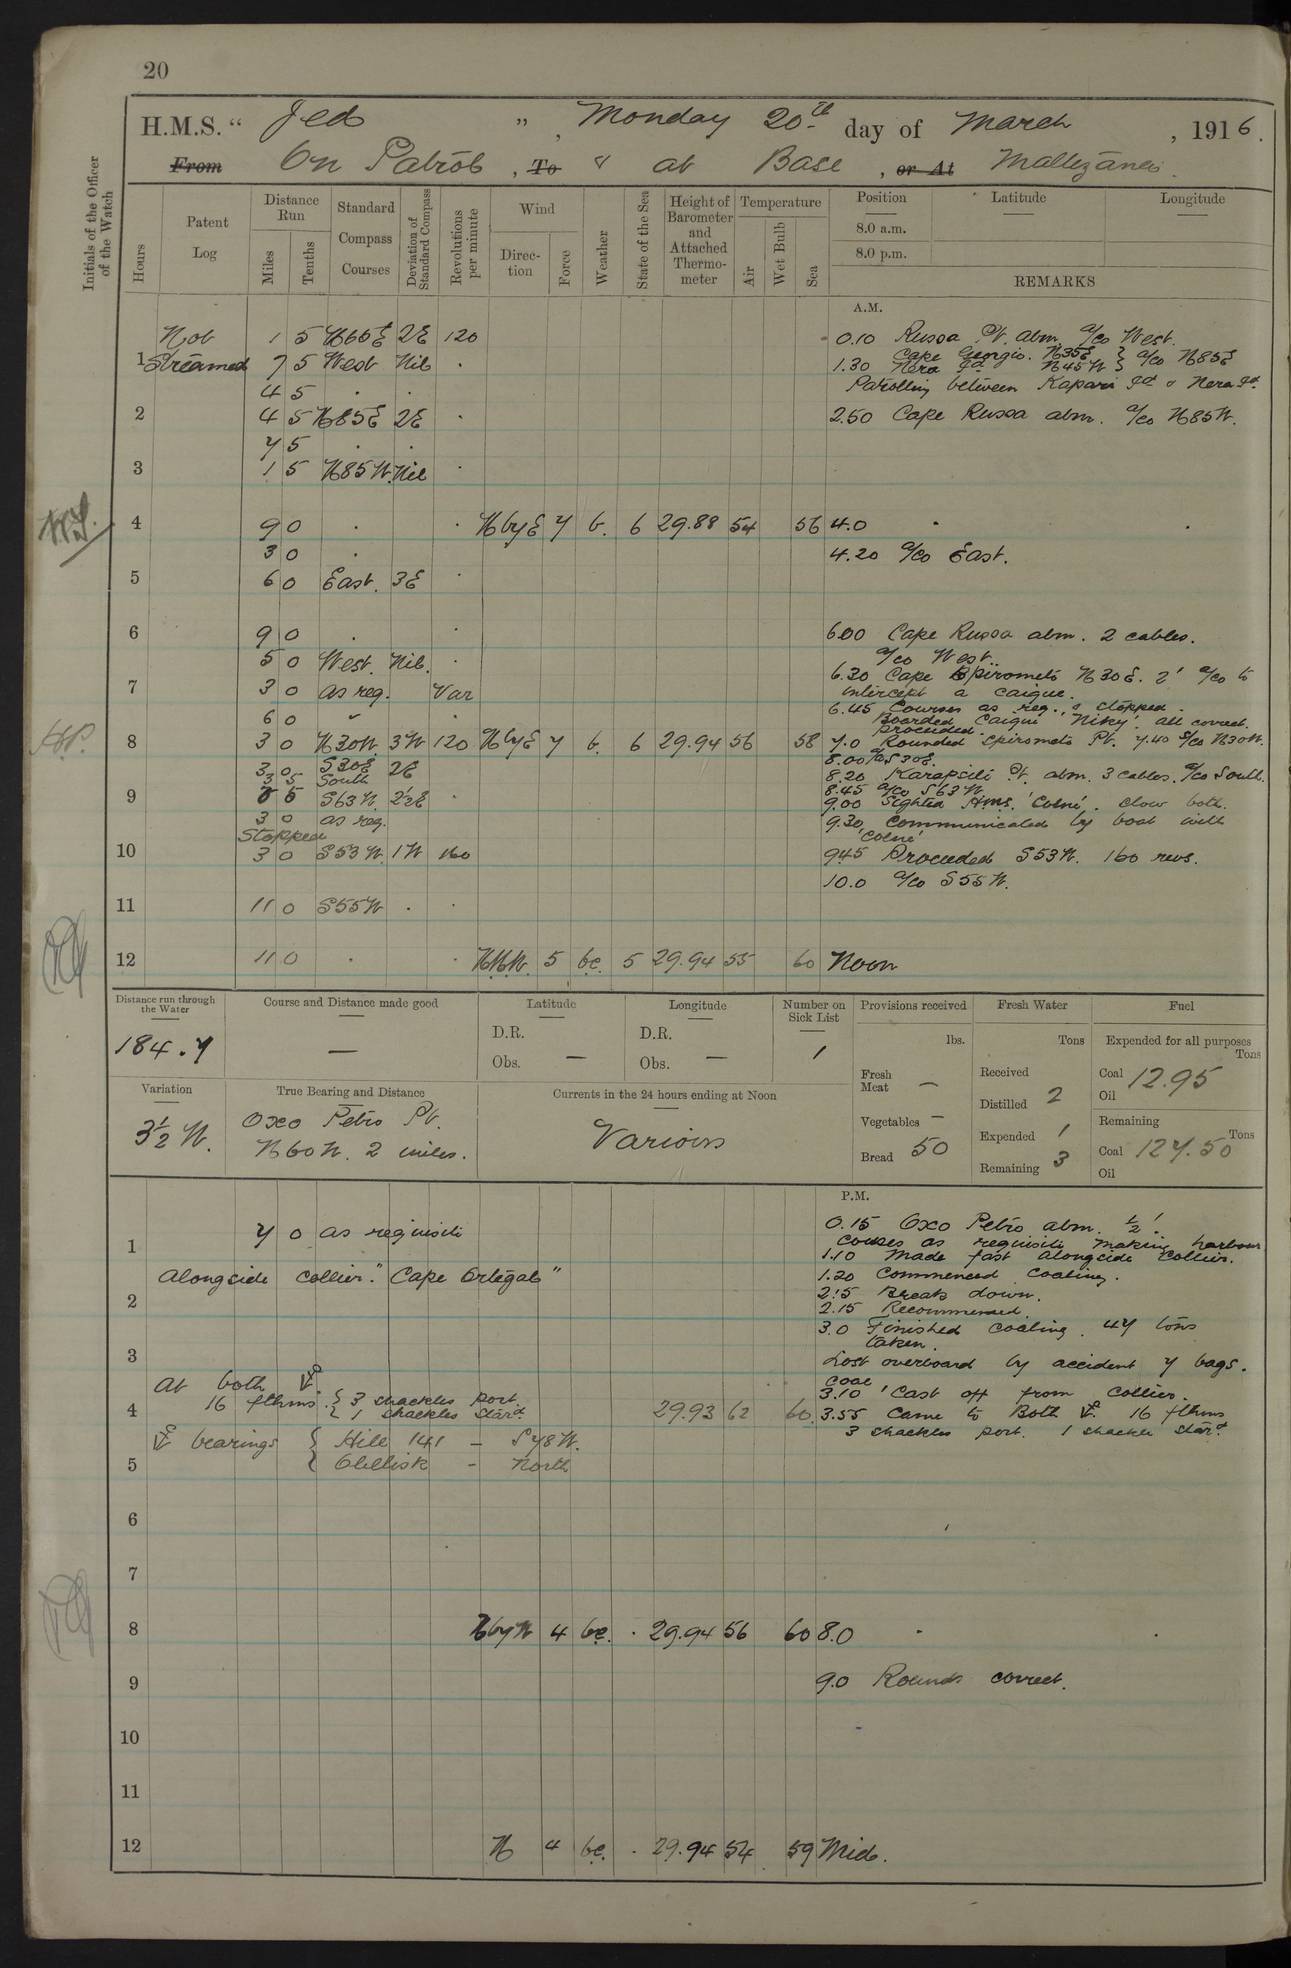 20
H.M.S. “ Jed ” , Monday 20th day of March , 1916.
From On Patrol , To & at Base , or At Mallezana.
Initials of the Officer of the Watch
Hours
Patent Log
Distance Run
Miles
Tenths
Standard Compass Courses
Deviation of Standard Compass
Revolutions per minute
Wind
Direction
Force
Weather
State of the Sea
Height of Barometer and Attached Thermometer
Temperature
Air
Wet Bulb
Sea
Position
8.0 a.m.
8.0 p.m.
Latitude
Longitude
REMARKS
A.M.
Not 1 5 N65E 2E 120 0.10 Russa Pt. abm. a/co West.
1 Streamed 7 5 West Nil . 1.30 Cape Georgio. N35E } a/co N85E
Nera Id N45W }
4 5 . . Patrolling between Kapari Id & Nera Id.
2 4 5 N85E 2E . 2.50 Cape Russa abm. a/co N85W.
7 5 . .
3 1 5 N85W. Nil .
4 9 0 . . N by E 7 b. 6 29.88 54 56 4.0 . .
3 0 . 4.20 a/co East.
5 6 0 East. 3E .
6 9 0 . . 6.00 Cape Russa abm. 2 cables.
5 0 West. Nil. . a/co West.
7 3 0 as req. Var 6.20 Cape Spirometo N30E. 2' a/co to
intercept a caique.
6 0 " . 6.45 Courses as req. & stopped.
Boarded Caique 'Niky'. all correct.
proceeded.
8 3 0 N30W. 3W 120 N by E 7 b. 6 29.94 56 58 7.0 Rounded Spirometo Pt. 7.40 a/co N30W.
3 0 S30E 2E 8.00 a/co S30E.
3 5 South 8.20 Karapsili Pt. abm. 3 cables. a/co South.
9 5 S63W. 2½E . 8.45 a/co S63W.
9.00 Sighted H.M.S. 'Colne'. Clow both.
3 0 as req. 9.30 Communicated by boat with
Stopped 'Colne'
10 3 0 S53W. 1W 160 9.45 Proceeded S53W. 160 revs.
10.0 a/co S55W.
11 11 0 S55W . .
12 11 0 . . N.N.W. 5 bc. 5 29.94 55 60 Noon
Distance run through the Water
184.7
Course and Distance made good
—
Latitude
D.R.
Obs. —
Longitude
D.R.
Obs. —
Number on Sick List
1
Provisions received
lbs.
Fresh Meat —
Vegetables —
Bread 50
Fresh Water
Tons
Received
Distilled 2
Expended 1
Remaining 3
Fuel
Expended for all purposes
Tons
Coal 12.95
Oil
Remaining
Tons
Coal 127.50
Oil
Variation
3½ W.
True Bearing and Distance
Oxo Petro Pt.
N60W. 2 miles.
Currents in the 24 hours ending at Noon
Various
P.M.
0.15 Oxo Petro abm. ½'.
1 7 0 as requisite Couses as requisite making harbour
1.10 Made fast alongside Collier.
Alongside Collier. "Cape Ortegal" 1.20 Commenced Coaling.
2 2.5 Break down.
2.15 Recommenced.
3.0 Finished Coaling. 47 tons
taken.
3 Lost overboard by accident 7 bags.
Coal
At both ⚓s. 3.10 Cast off from Collier.
16 fthms. { 3 shackles port.
4 { 1 shackles Stard. 29.93 62 60. 3.55 Came to Both ⚓s. 16 fthms
3 shackles port. 1 shackle stard.
⚓ bearings { Hill 141 - S78W.
5 { Obilisk - North
6
7
8 N by W 4 bc. . 29.94 56 60 8.0 . .
9 9.0 Rounds correct.
10
11
12 N 4 bc. . 29.94 54 59 Mid.